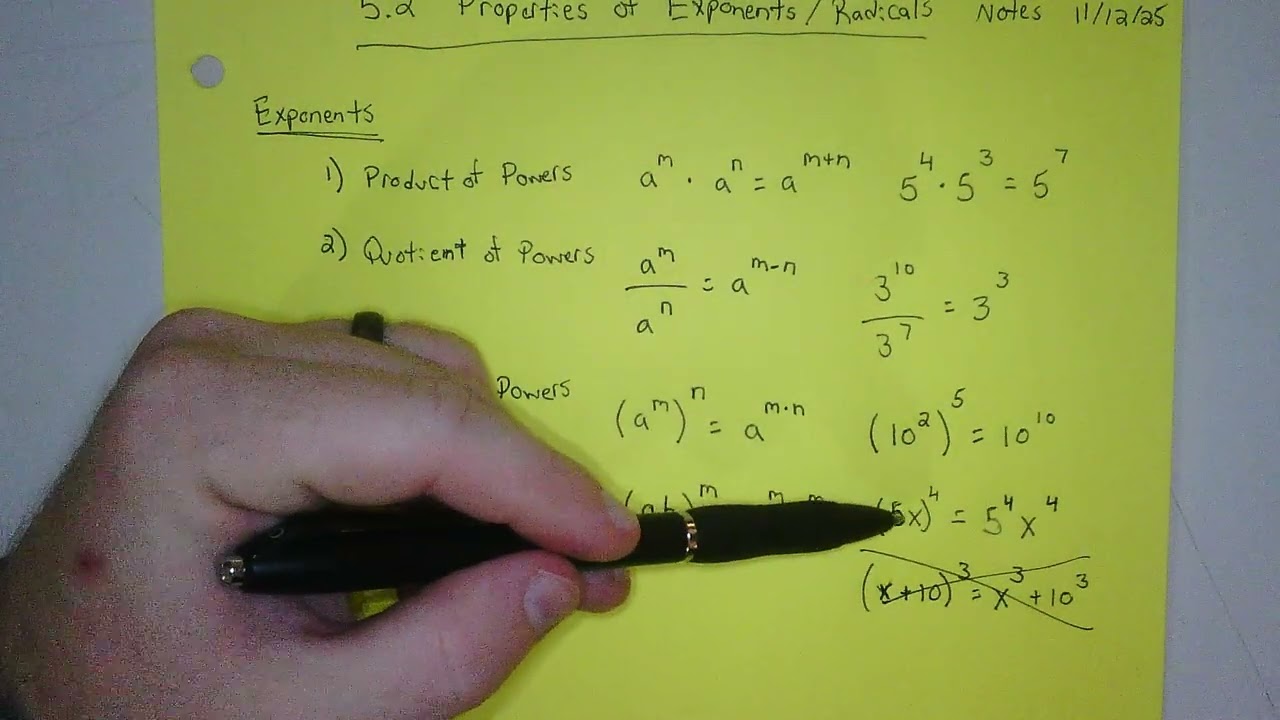 5.2 Properties of Exponents/Radicals Notes 11/12/25
Exponents
1) Product of Powers a^m · a^n = a^(m+n) 5^4 · 5^3 = 5^7
2) Quotient of Powers a^m / a^n = a^(m-n) 3^10 / 3^7 = 3^3
Powers (a^m)^n = a^(m·n) (10^2)^5 = 10^10
(ab)^m (5x)^4 = 5^4 x^4
(x+10)^3 = x^3 + 10^3